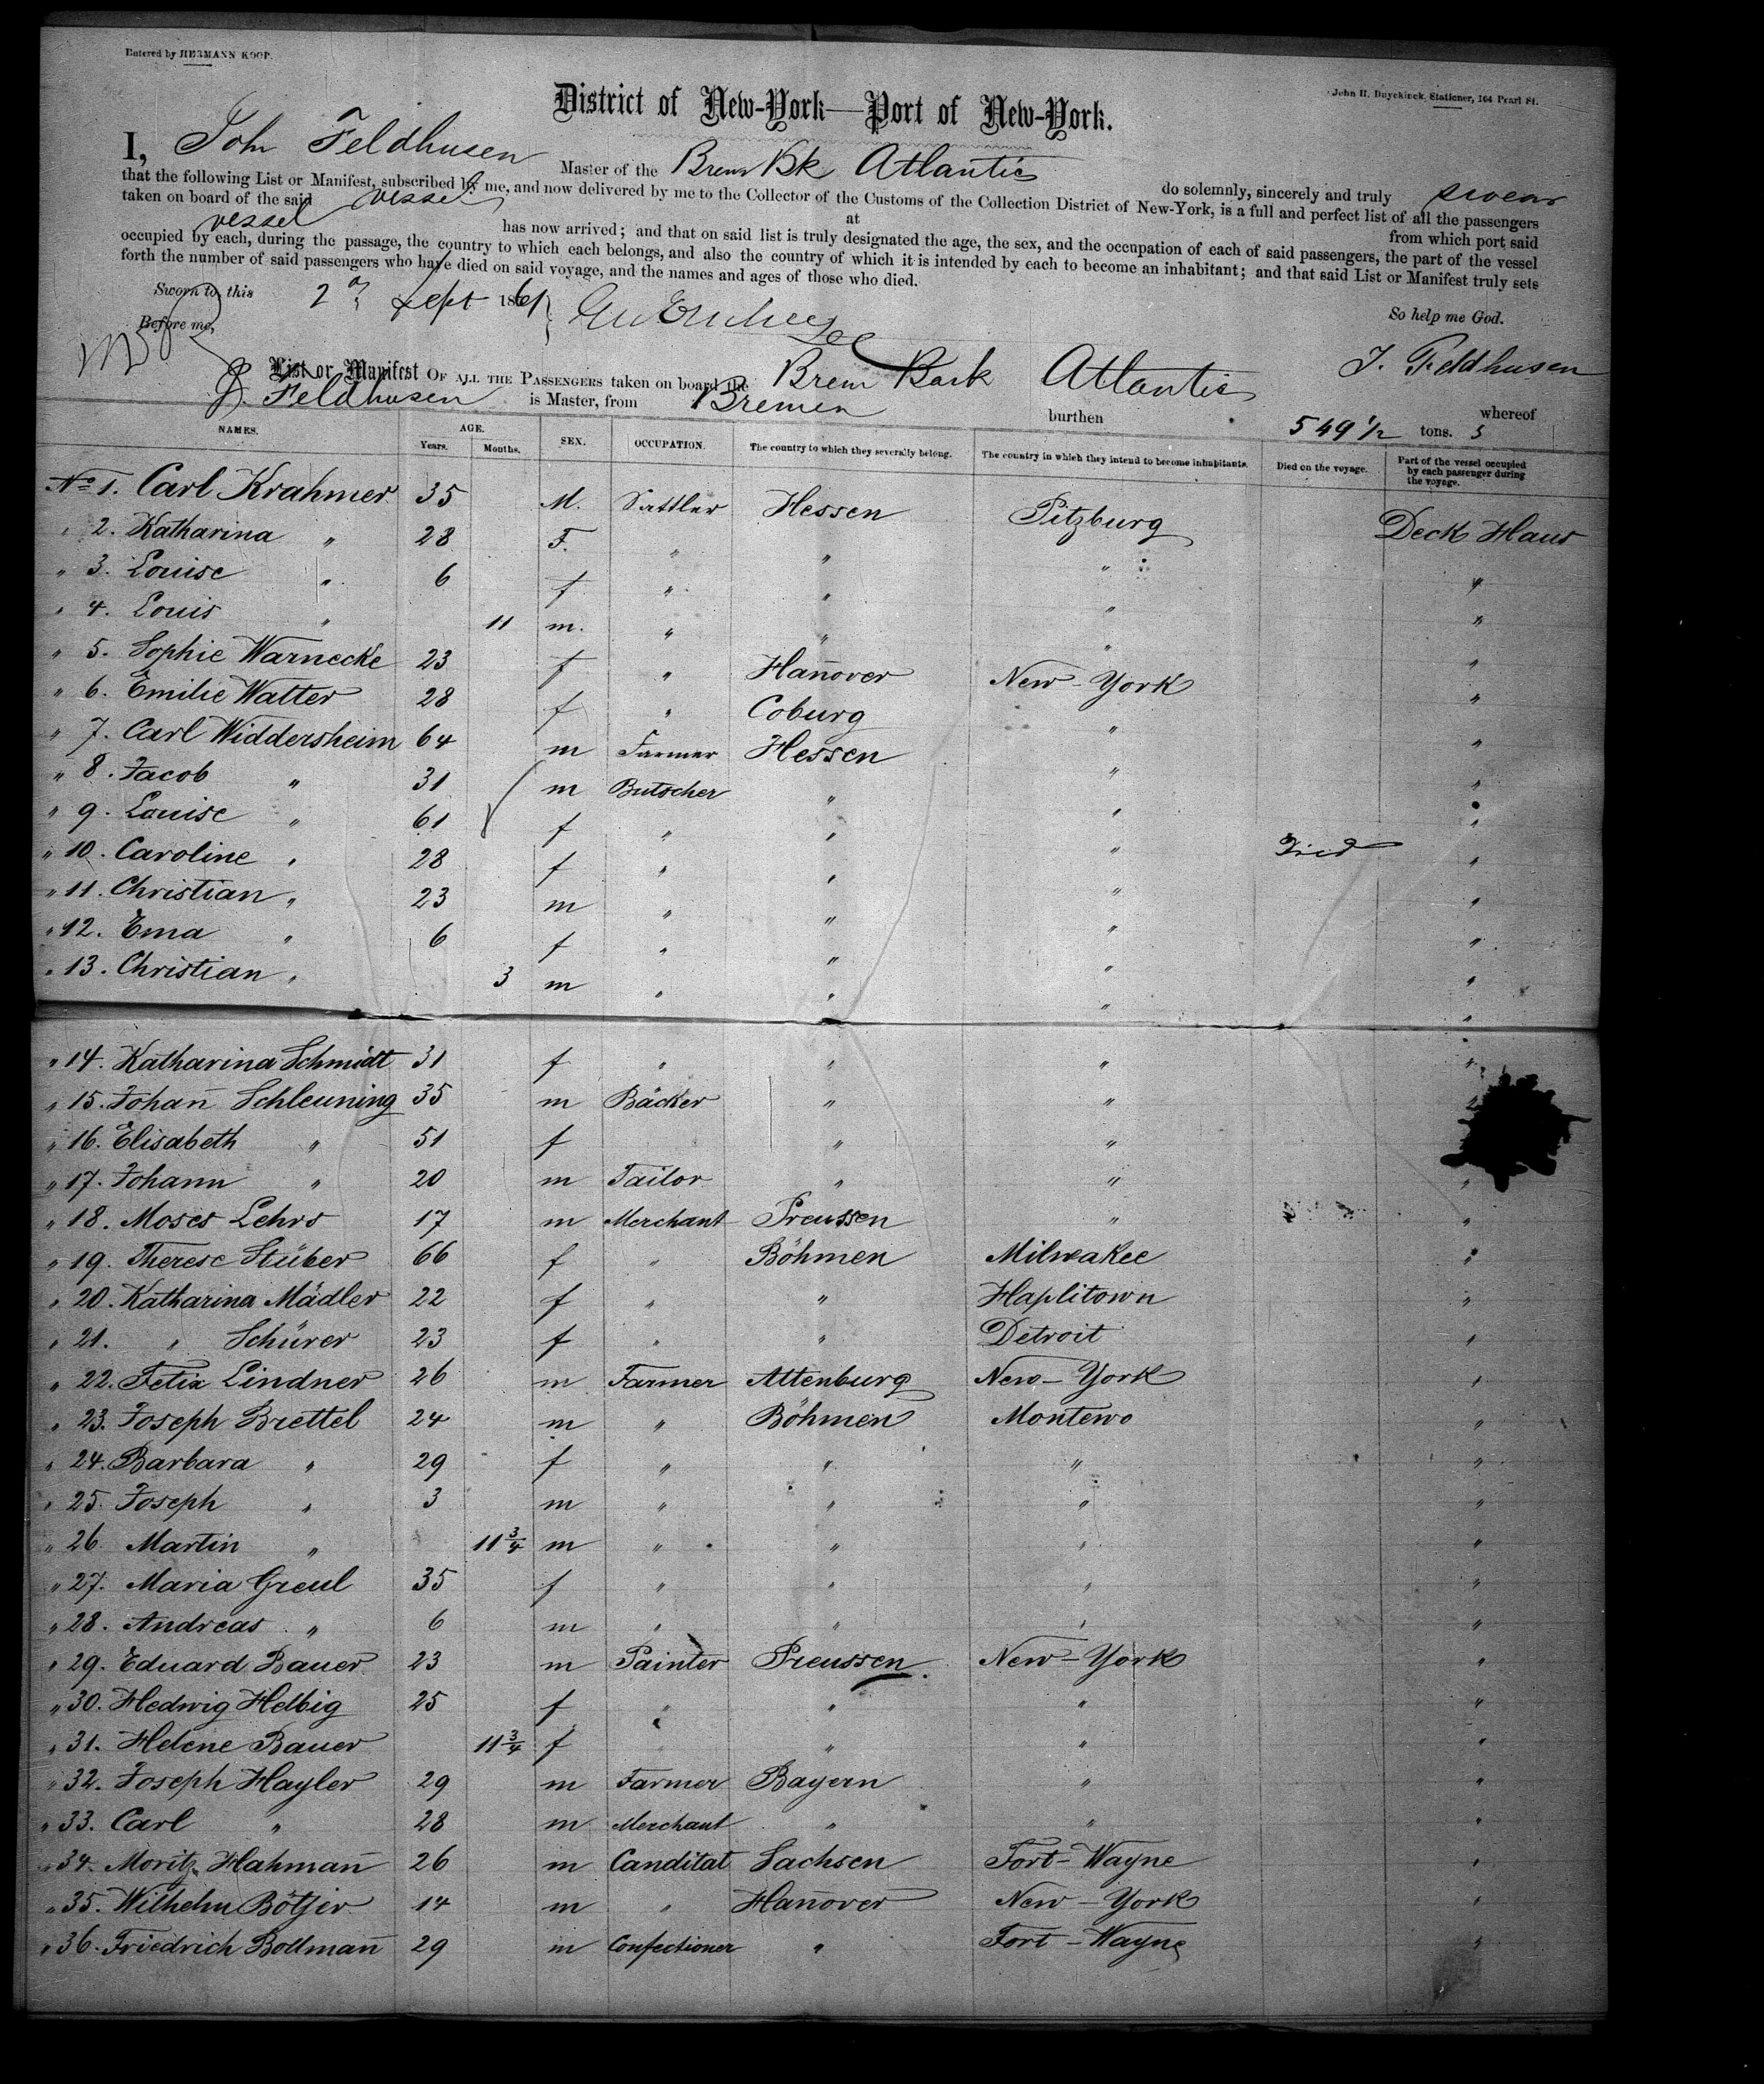 Entered by HERMANN KOOP.
John H. Duyckinck, Stationer, 164 Pearl St.
District of New-York—Port of New-York.
I, John Feldhusen Master of the Brem Bk Atlantic do solemnly, sincerely and truly swear
that the following List or Manifest, subscribed by me, and now delivered by me to the Collector of the Customs of the Collection District of New-York, is a full and perfect list of all the passengers
taken on board of the said vessel at from which port said
vessel has now arrived; and that on said list is truly designated the age, the sex, and the occupation of each of said passengers, the part of the vessel
occupied by each, during the passage, the country to which each belongs, and also the country of which it is intended by each to become an inhabitant; and that said List or Manifest truly sets
forth the number of said passengers who have died on said voyage, and the names and ages of those who died.
Sworn to, this 2 Sept 1861
So help me God.
Before me,
J. Feldhusen
List or Manifest OF ALL THE PASSENGERS taken on board the Brem Bark Atlantic whereof
J. Feldhusen is Master, from Bremen burthen 549 1/2 tons.
NAMES. AGE. Years. Months. SEX. OCCUPATION. The country to which they severally belong. The country in which they intend to become inhabitants. Died on the voyage. Part of the vessel occupied by each passenger during the voyage.
No 1. Carl Krahmer 35 M. Sattler Hessen Pitzburg Deck Haus
" 2. Katharina " 28 F. " " " "
" 3. Louise " 6 f " " " "
" 4. Louis " 11 m. " " " "
" 5. Sophie Warnecke 23 f " Han̄over New-York "
" 6. Emilie Walter 28 f " Coburg " "
" 7. Carl Widdersheim 64 m Farmer Hessen " "
" 8. Jacob " 31 m Butscher " " "
" 9. Louise " 61 f " " " Died "
" 10. Caroline " 28 f " " " "
" 11. Christian " 23 m " " " "
" 12. Ema " 6 f " " " "
" 13. Christian " 3 m " " " "
" 14. Katharina Schmidt 31 f " " " "
" 15. Johan̄ Schleuning 35 m Bäcker " "
" 16. Elisabeth " 51 f " "
" 17. Johann " 20 m Tailor " " "
" 18. Moses Lehrs 17 m Merchant Preussen " "
" 19. Therese Stüber 66 f " Böhmen Milwakee "
" 20. Katharina Mädler 22 f " " Haplitown "
" 21. " Schürer 23 f " " Detroit "
" 22. Felix Lindner 26 m Farmer Altenburg New-York "
" 23. Joseph Brettel 24 m " Böhmen Montewo "
" 24. Barbara " 29 f " " " "
" 25. Joseph " 3 m " " " "
" 26. Martin " 11 3/4 m " " " "
" 27. Maria Greul 35 f " " " "
" 28. Andreas " 6 m " " " "
" 29. Eduard Bauer 23 m Painter Preussen. New-York "
" 30. Hedwig Helbig 25 f " " " "
" 31. Helene Bauer 11 3/4 f " " "
" 32. Joseph Hayler 29 m Farmer Bayern " "
" 33. Carl " 28 m Merchant " " "
" 34. Moritz Hahman̄ 26 m Canditat Sachsen Fort-Wayne "
" 35. Wilhelm Bötjer 14 m " Han̄over New-York "
" 36. Friedrich Bollman̄ 29 m Confectioner " Fort-Wayne "